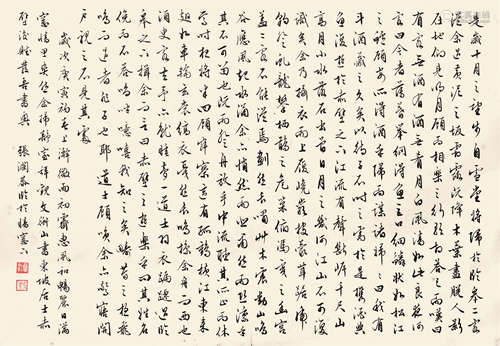 是歲十月之望步自雪堂將歸於臨皋二客
從余過黃泥之坂霜露既降木葉盡脫人影
在地仰見明月顧而相樂之行歌相答已而嘆曰
有客無酒有酒無肴月白風清如此良夜何
客曰今者薄暮舉網得魚巨口細鱗狀如松江
之鱸顧安所得酒乎歸而謀諸婦婦曰我有
斗酒藏之久矣以待子不時之需於是攜酒與
魚復遊於赤壁之下江流有聲斷岸千尺山
高月小水落石出曾日月之幾何而江山不可復
識矣余乃攝衣而上履巉巖披蒙茸踞虎
豹登虬龍攀棲鶻之危巢俯馮夷之幽宮
蓋二客不能從焉劃然長嘯草木震動山鳴
谷應風起水涌余亦悄然而悲肅然而恐凜乎
其不可留也反而登舟放乎中流聽其所止而休
焉時夜將半四顧寂寥適有孤鶴橫江東來
翅如車輪玄裳縞衣戛然長鳴掠余舟而西也
須臾客去余亦就睡夢一道士羽衣蹁躚過臨
皋之下揖余而言曰赤壁之遊樂乎問其姓名
俛而不答嗚呼噫嘻我知之矣疇昔之夜飛
鳴而過我者非子也耶道士顧笑余亦驚寤開
戶視之不見其處
歲次庚寅初春上澣微雨初霽惠風和暢麗日滿
東坡居士赤
壁後賦